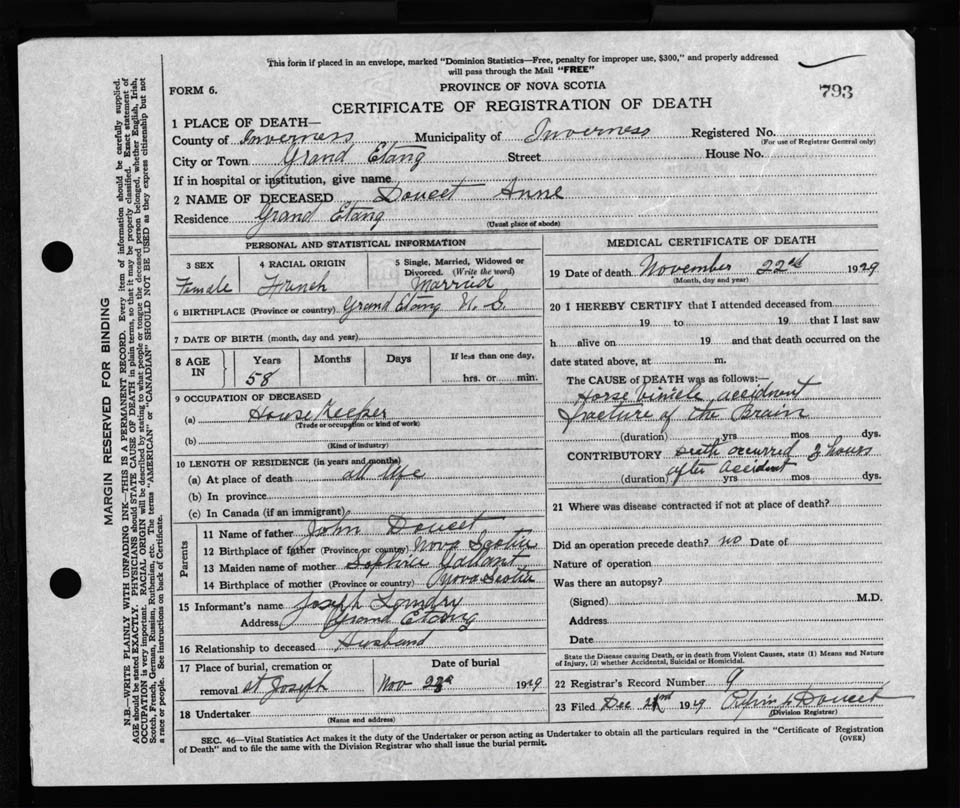 This form if placed in an envelope, marked "Dominion Statistics—Free, penalty for improper use, $300," and properly addressed
will pass through the Mail "FREE"
FORM 6.
PROVINCE OF NOVA SCOTIA
793
CERTIFICATE OF REGISTRATION OF DEATH
1 PLACE OF DEATH—
County of Inverness Municipality of Inverness Registered No.
(For use of Registrar General only)
City or Town Grand Etang Street House No.
If in hospital or institution, give name
2 NAME OF DECEASED Doucet Anne
Residence Grand Etang
(Usual place of abode)
PERSONAL AND STATISTICAL INFORMATION
3 SEX
Female
4 RACIAL ORIGIN
French
5 Single, Married, Widowed or
Divorced. (Write the word)
Married
6 BIRTHPLACE (Province or country) Grand Etang N. S.
7 DATE OF BIRTH (month, day and year)
8 AGE
IN
Years Months Days If less than one day,
58 hrs. or min.
9 OCCUPATION OF DECEASED
(a) House Keeper
(Trade or occupation or kind of work)
(b)
(Kind of industry)
10 LENGTH OF RESIDENCE (in years and months)
(a) At place of death all life
(b) In province
(c) In Canada (if an immigrant)
Parents
11 Name of father John Doucet
12 Birthplace of father (Province or country) Nova Scotia
13 Maiden name of mother Sophie Gallant
14 Birthplace of mother (Province or country) Nova Scotia
15 Informant's name Joseph Landry
Address Grand Etang
16 Relationship to deceased Husband
17 Place of burial, cremation or
removal St Joseph
Date of burial
Nov 1929
18 Undertaker
(Name and address)
MEDICAL CERTIFICATE OF DEATH
19 Date of death November 22nd 1929
(Month, day and year)
20 I HEREBY CERTIFY that I attended deceased from
19 to 19 that I last saw
h alive on 19 and that death occurred on the
date stated above, at m.
The CAUSE of DEATH was as follows:—
Horse Vinicle accident
fracture of the Brain
(duration) yrs mos dys.
CONTRIBUTORY death occurred hours
after accident
(duration) yrs mos dys.
21 Where was disease contracted if not at place of death?
Did an operation precede death? no Date of
Nature of operation
Was there an autopsy?
(Signed) M.D.
Address
Date
State the Disease causing Death, or in death from Violent Causes, state (1) Means and Nature
of Injury, (2) whether Accidental, Suicidal or Homicidal.
22 Registrar's Record Number 9
23 Filed Dec 1929 Doucet
(Division Registrar)
SEC. 46—Vital Statistics Act makes it the duty of the Undertaker or person acting as Undertaker to obtain all the particulars required in the "Certificate of Registration
of Death" and to file the same with the Division Registrar who shall issue the burial permit.
(OVER)
MARGIN RESERVED FOR BINDING
N.B.—WRITE PLAINLY WITH UNFADING INK—THIS IS A PERMANENT RECORD. Every item of information should be carefully supplied.
AGE should be stated EXACTLY. PHYSICIANS should STATE CAUSE OF DEATH in plain terms, so that it may be properly classified. Exact statement of
OCCUPATION is very important. RACIAL ORIGIN will be described by stating to what people or tongue the deceased person belonged, whether English, Irish,
Scotch, French, German, Russian, Ruthenian, etc. The terms "AMERICAN" or "CANADIAN" SHOULD NOT BE USED as they express citizenship but not
a race or people. See instructions on back of Certificate.